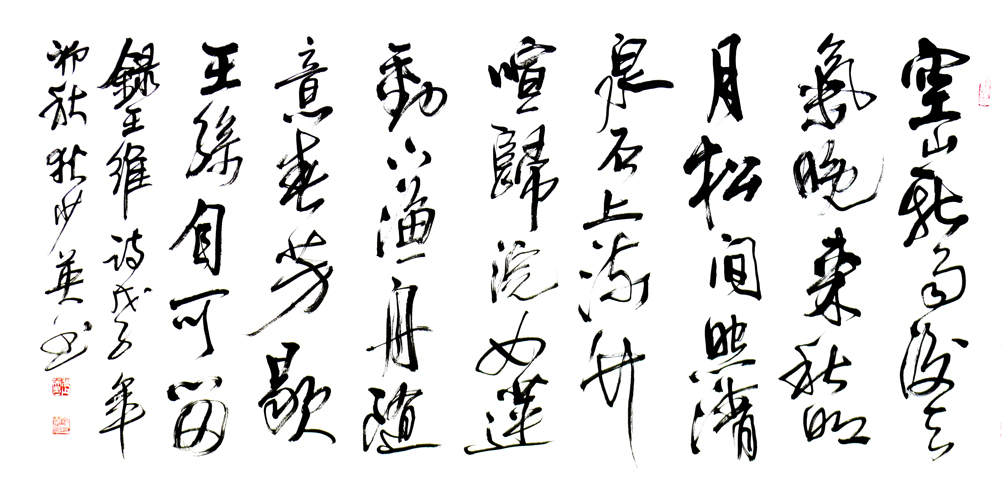 空山新雨後天
氣晚來秋明
月松間照清
泉石上流竹
喧歸浣女蓮
動下漁舟隨
意春芳歇
王孫自可留
錄王維詩戊子年
初秋狄少英书